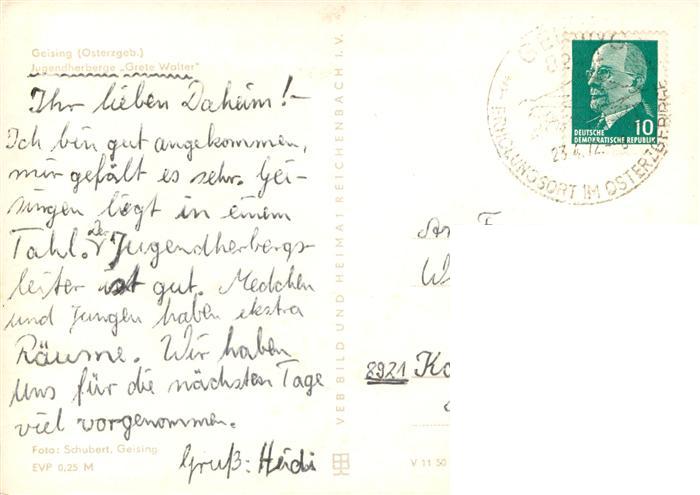 Geising (Osterzgeb.)
Jugendherberge „Grete Walter"
Ihr lieben Daheim!-
Ich bin gut angekommen,
mir gefält es sehr. Gei-
singen liegt in einem
Tahl. Der Jugendherbergs-
leiter ist gut. Medchen
und Jungen haben ekstra
Räume. Wir haben
uns für die nächsten Tage
viel vorgenommen.
Gruß: Heidi
Foto: Schubert, Geising
EVP 0,25 M
VEB BILD UND HEIMAT REICHENBACH I. V.
V 11 50
10
DEUTSCHE
DEMOKRATISCHE REPUBLIK
ERHOLUNGSORT IM OSTERZGEBIRGE
2921